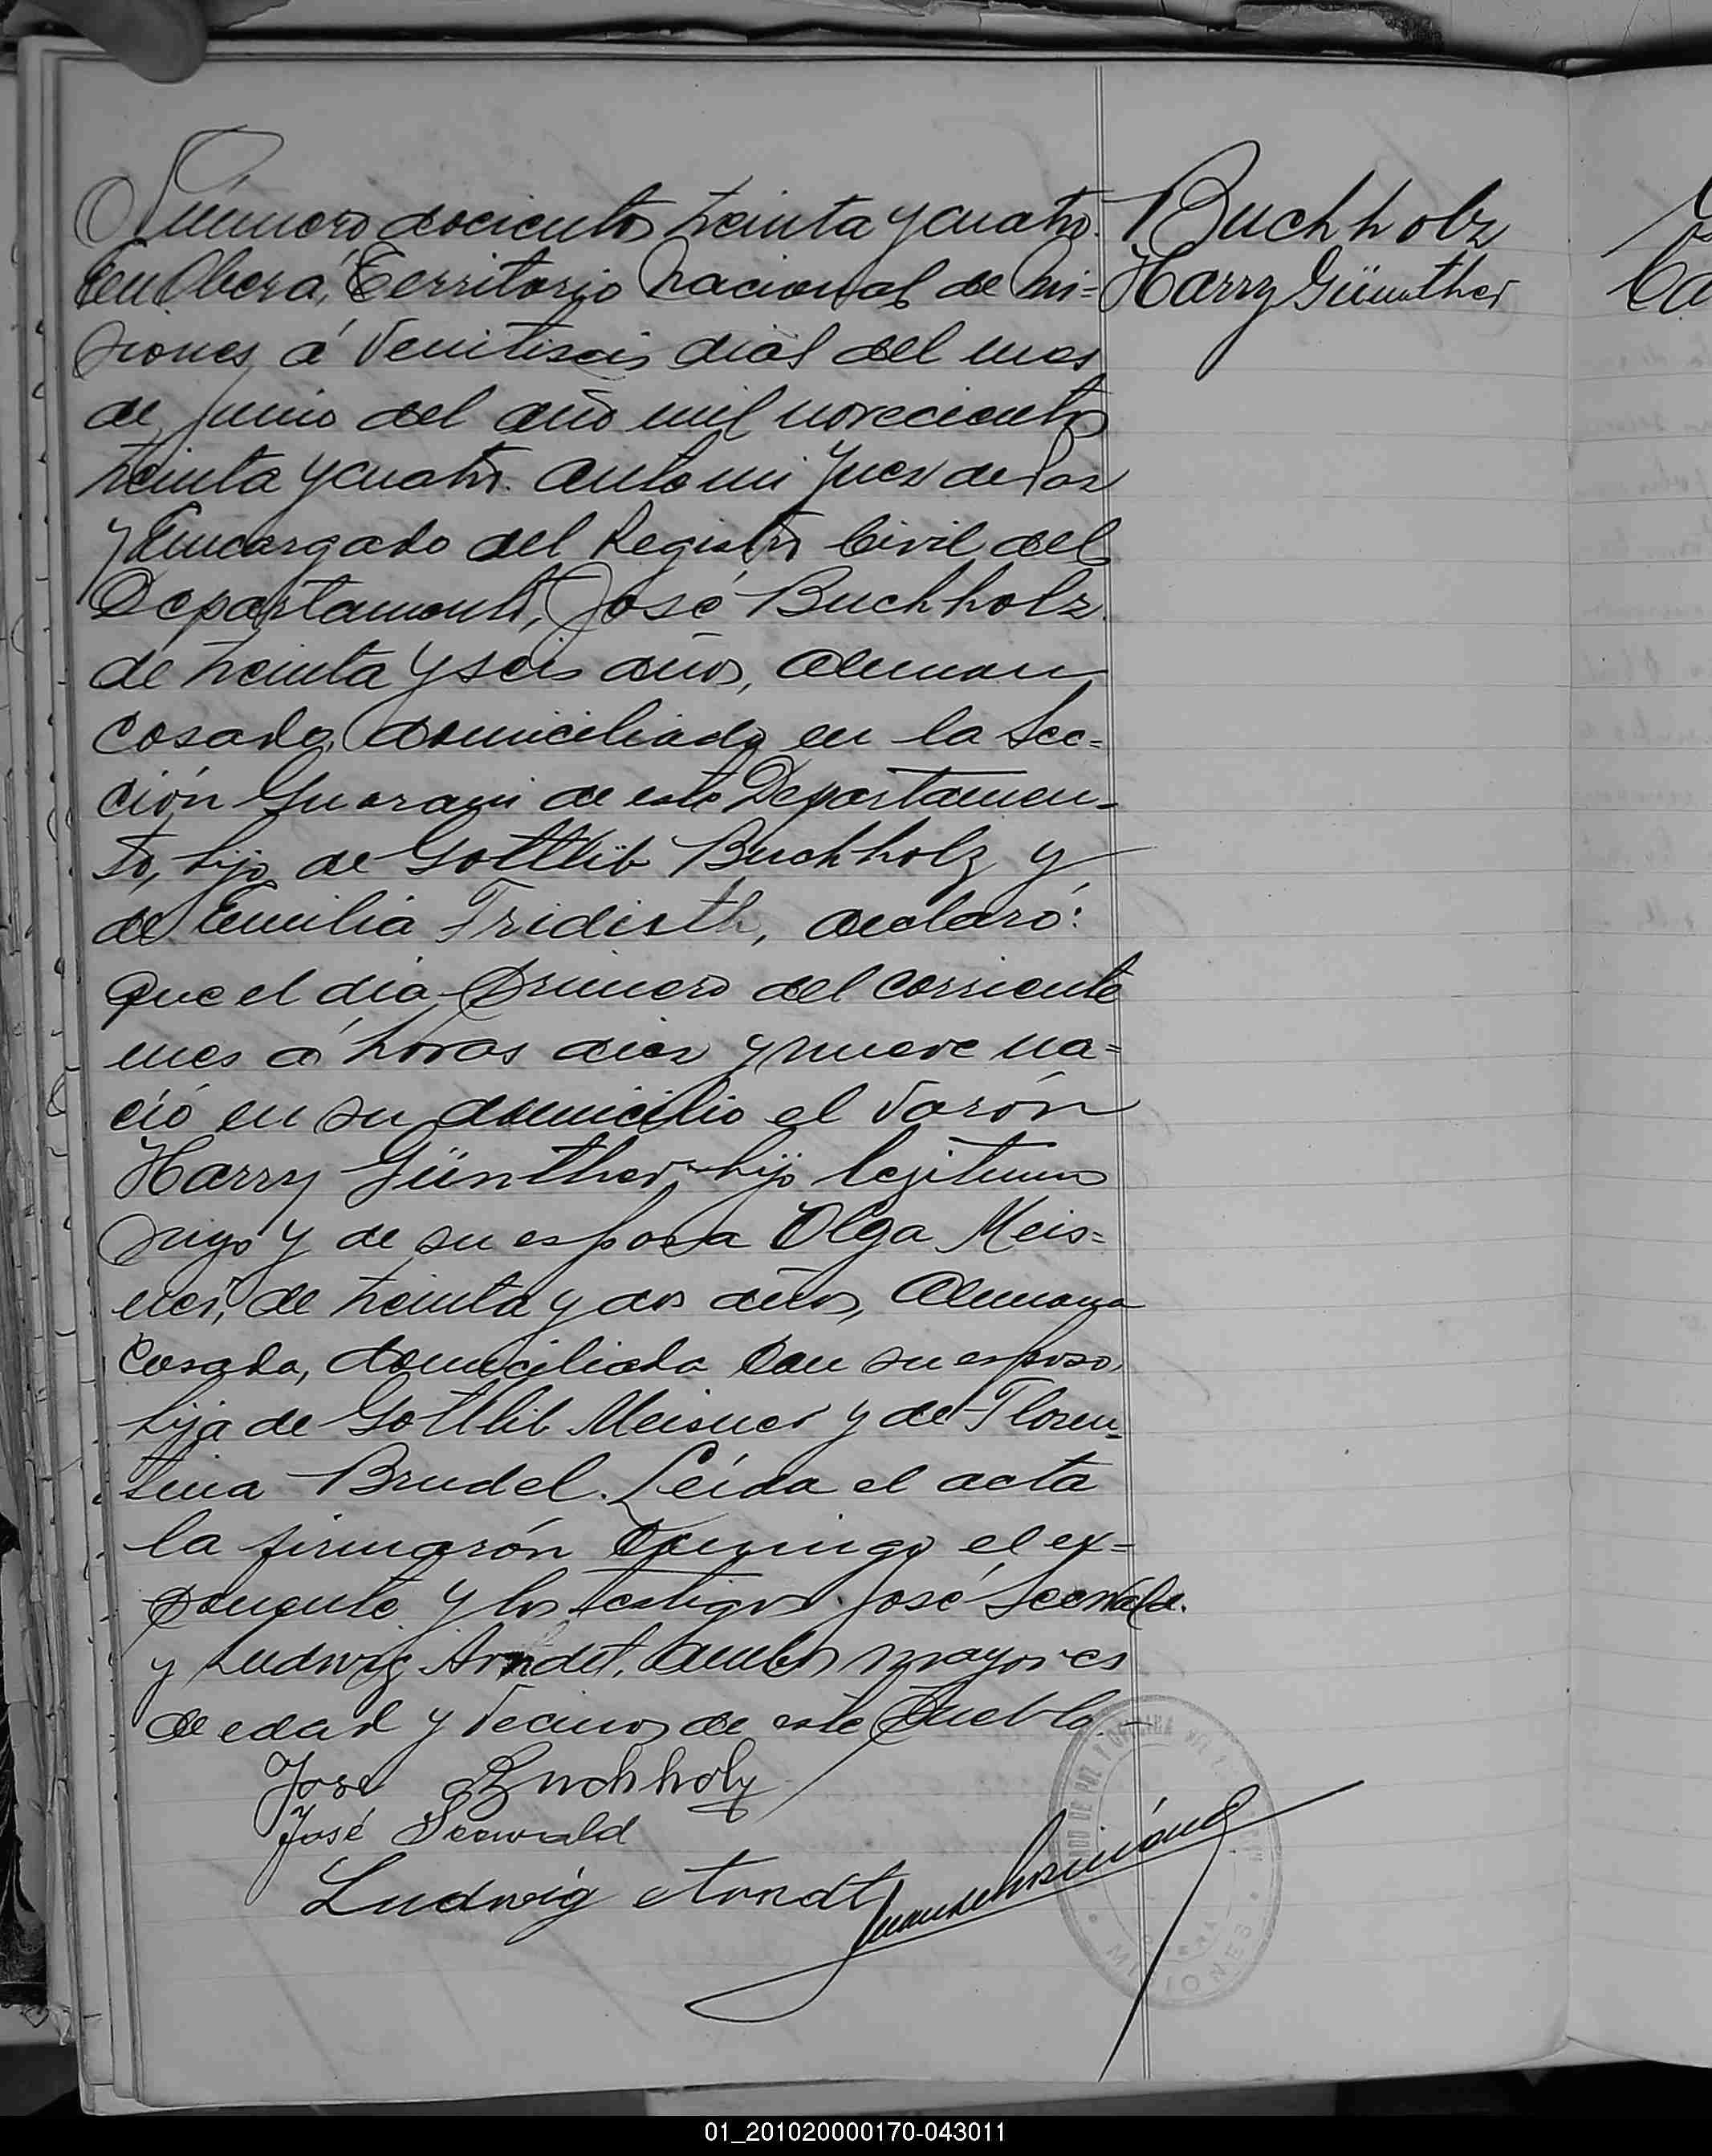 Número docientos treinta y cuatro.
En Oberá, Territorio Nacional de Mi=
siones, á veintiseis dias del mes
de junio del año mil novecientos
treinta y cuatro. Ante mi Juez de Paz
y Encargado del Registro Civil del
Departamento, José Buchholz.
de treinta y seis años, Aleman
casado, domiciliado en la Sec=
ción Guarani de este Departamen-
to, hijo de Gottlib Buchholz y
de Emilia Fridisth, declaró:
Que el dia primero del corriente
mes á horas diez y nueve na=
ció en su domicilio el varón
Harry Günther, hijo legitimo
suyo y de su esposa Olga Meis=
ner, de treinta y dos años, Alemana
casada, domiciliada con su esposo,
hija de Gottlib Meisner y de Floren=
tina Brudel. Leida el acta
la firmarón conmigo el ex=
ponente y los testigos José Seewald.
y Ludwig Arndt, ambos mayores
de edad y vecinos de este Pueblo.-
José Buchholz
José Seewald
Ludwig Arndt
Buchholz
Harry Günther
MISIONES
01_201020000170-043011